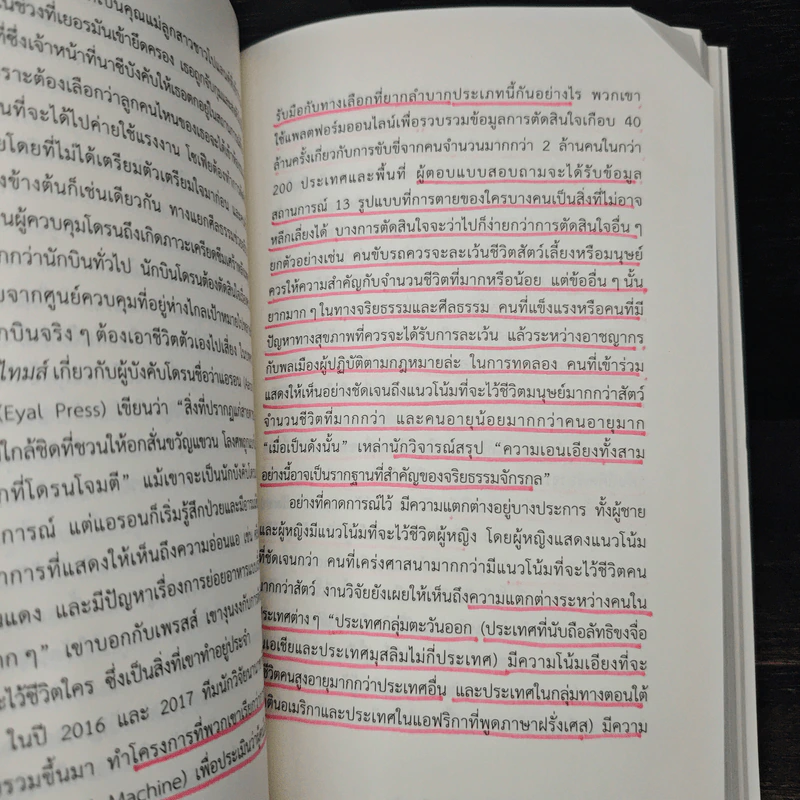 เป็นคุณแม่ลูกสาวชาวโปแลนด์
ในช่วงที่เยอรมันเข้ายึดครอง เธอถูกจับกุม
ที่ซึ่งเจ้าหน้าที่นาซีบังคับให้เธอตกอยู่ในสถาน
ราะต้องเลือกว่าลูกคนไหนของเธอจะได้
นที่จะได้ไปค่ายใช้แรงงาน โซเฟียต้องทำ
ยโดยที่ไม่ได้เตรียมตัวเตรียมใจมาก่อน และ
งข้างต้นก็เช่นเดียวกัน ทางแยกศีลธรรม
นผู้ควบคุมโดรนถึงเกิดภาวะเครียดซึมเศร้า
กกว่านักบินทั่วไป นักบินโดรนต้องตัดสินใจ
ยจากศูนย์ควบคุมที่อยู่ห่างไกลเป้าหมายไป
กบินจริง ๆ ต้องเอาชีวิตตัวเองไปเสี่ยง ใน
ไทมส์ เกี่ยวกับผู้บังคับโดรนชื่อว่าแอรอน
(Eyal Press) เขียนว่า “สิ่งที่ปรากฏแก่สายตา
ใกล้ชิดที่ชวนให้อกสั่นขวัญแขวน โลงศพ
กที่โดรนโจมตี” แม้เขาจะเป็นนักบังคับ
การณ์ แต่แอรอนก็เริ่มรู้สึกป่วยและมีอาการ
าการที่แสดงให้เห็นถึงความอ่อนแอ เช่น
นแดง และมีปัญหาเรื่องการย่อยอาหาร
าก ๆ” เขาบอกกับเพรสส์ เขางุนงงกับการ
ะไว้ชีวิตใคร ซึ่งเป็นสิ่งที่เขาทำอยู่ประจำ
ในปี 2016 และ 2017 ทีมนักวิจัยนานา
รวมขึ้นมา ทำโครงการที่พวกเขาเรียกว่า
Machine) เพื่อประเมินว่า
รับมือกับทางเลือกที่ยากลำบากประเภทนี้กันอย่างไร พวกเขา
ใช้แพลตฟอร์มออนไลน์เพื่อรวบรวมข้อมูลการตัดสินใจเกือบ 40
ล้านครั้งเกี่ยวกับการขับขี่จากคนจำนวนมากกว่า 2 ล้านคนในกว่า
200 ประเทศและพื้นที่ ผู้ตอบแบบสอบถามจะได้รับข้อมูล
สถานการณ์ 13 รูปแบบที่การตายของใครบางคนเป็นสิ่งที่ไม่อาจ
หลีกเลี่ยงได้ บางการตัดสินใจจะว่าไปก็ง่ายกว่าการตัดสินใจอื่น ๆ
ยกตัวอย่างเช่น คนขับรถควรจะละเว้นชีวิตสัตว์เลี้ยงหรือมนุษย์
ควรให้ความสำคัญกับจำนวนชีวิตที่มากหรือน้อย แต่ข้ออื่น ๆ นั้น
ยากมาก ๆ ในทางจริยธรรมและศีลธรรม คนที่แข็งแรงหรือคนที่มี
ปัญหาทางสุขภาพที่ควรจะได้รับการละเว้น แล้วระหว่างอาชญากร
กับพลเมืองผู้ปฏิบัติตามกฎหมายล่ะ ในการทดลอง คนที่เข้าร่วม
แสดงให้เห็นอย่างชัดเจนถึงแนวโน้มที่จะไว้ชีวิตมนุษย์มากกว่าสัตว์
จำนวนชีวิตที่มากกว่า และคนอายุน้อยมากกว่าคนอายุมาก
“เมื่อเป็นดังนั้น” เหล่านักวิจารณ์สรุป “ความเอนเอียงทั้งสาม
อย่างนี้อาจเป็นรากฐานที่สำคัญของจริยธรรมจักรกล”
อย่างที่คาดการณ์ไว้ มีความแตกต่างอยู่บางประการ ทั้งผู้ชาย
และผู้หญิงมีแนวโน้มที่จะไว้ชีวิตผู้หญิง โดยผู้หญิงแสดงแนวโน้ม
ที่ชัดเจนกว่า คนที่เคร่งศาสนามากกว่ามีแนวโน้มที่จะไว้ชีวิตคน
มากกว่าสัตว์ งานวิจัยยังเผยให้เห็นถึงความแตกต่างระหว่างคนใน
ระเทศต่างๆ “ประเทศกลุ่มตะวันออก (ประเทศที่นับถือลัทธิขงจื่อ
นเอเชียและประเทศมุสลิมไม่กี่ประเทศ) มีความโน้มเอียงที่จะ
ชีวิตคนสูงอายุมากกว่าประเทศอื่น และประเทศในกลุ่มทางตอนใต้
ตินอเมริกาและประเทศในแอฟริกาที่พูดภาษาฝรั่งเศส) มีความ